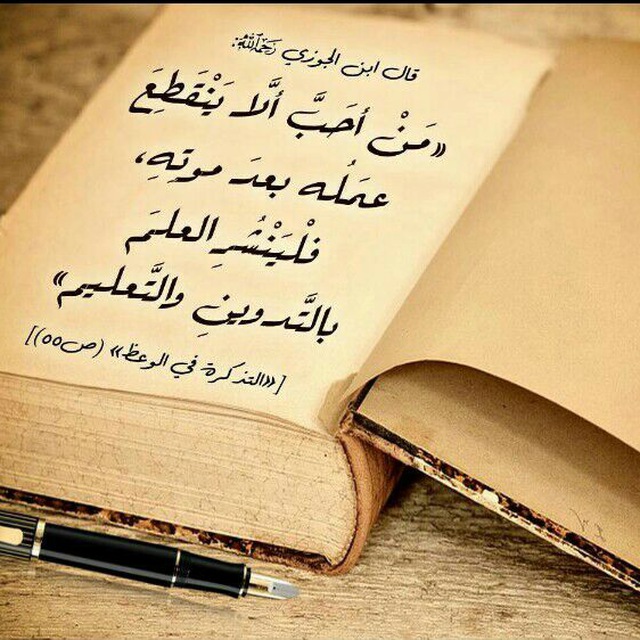 قال ابن الجوزي رحمه الله:
«مَنْ أحَبَّ ألَّا يَنْقَطِعَ
عمَلُه بعدَ موتِهِ،
فلْيَنْشُرِ العلمَ
بالتَّدوينِ والتَّعليم»
[«التذكرة في الوعظ» (ص٥٥)]